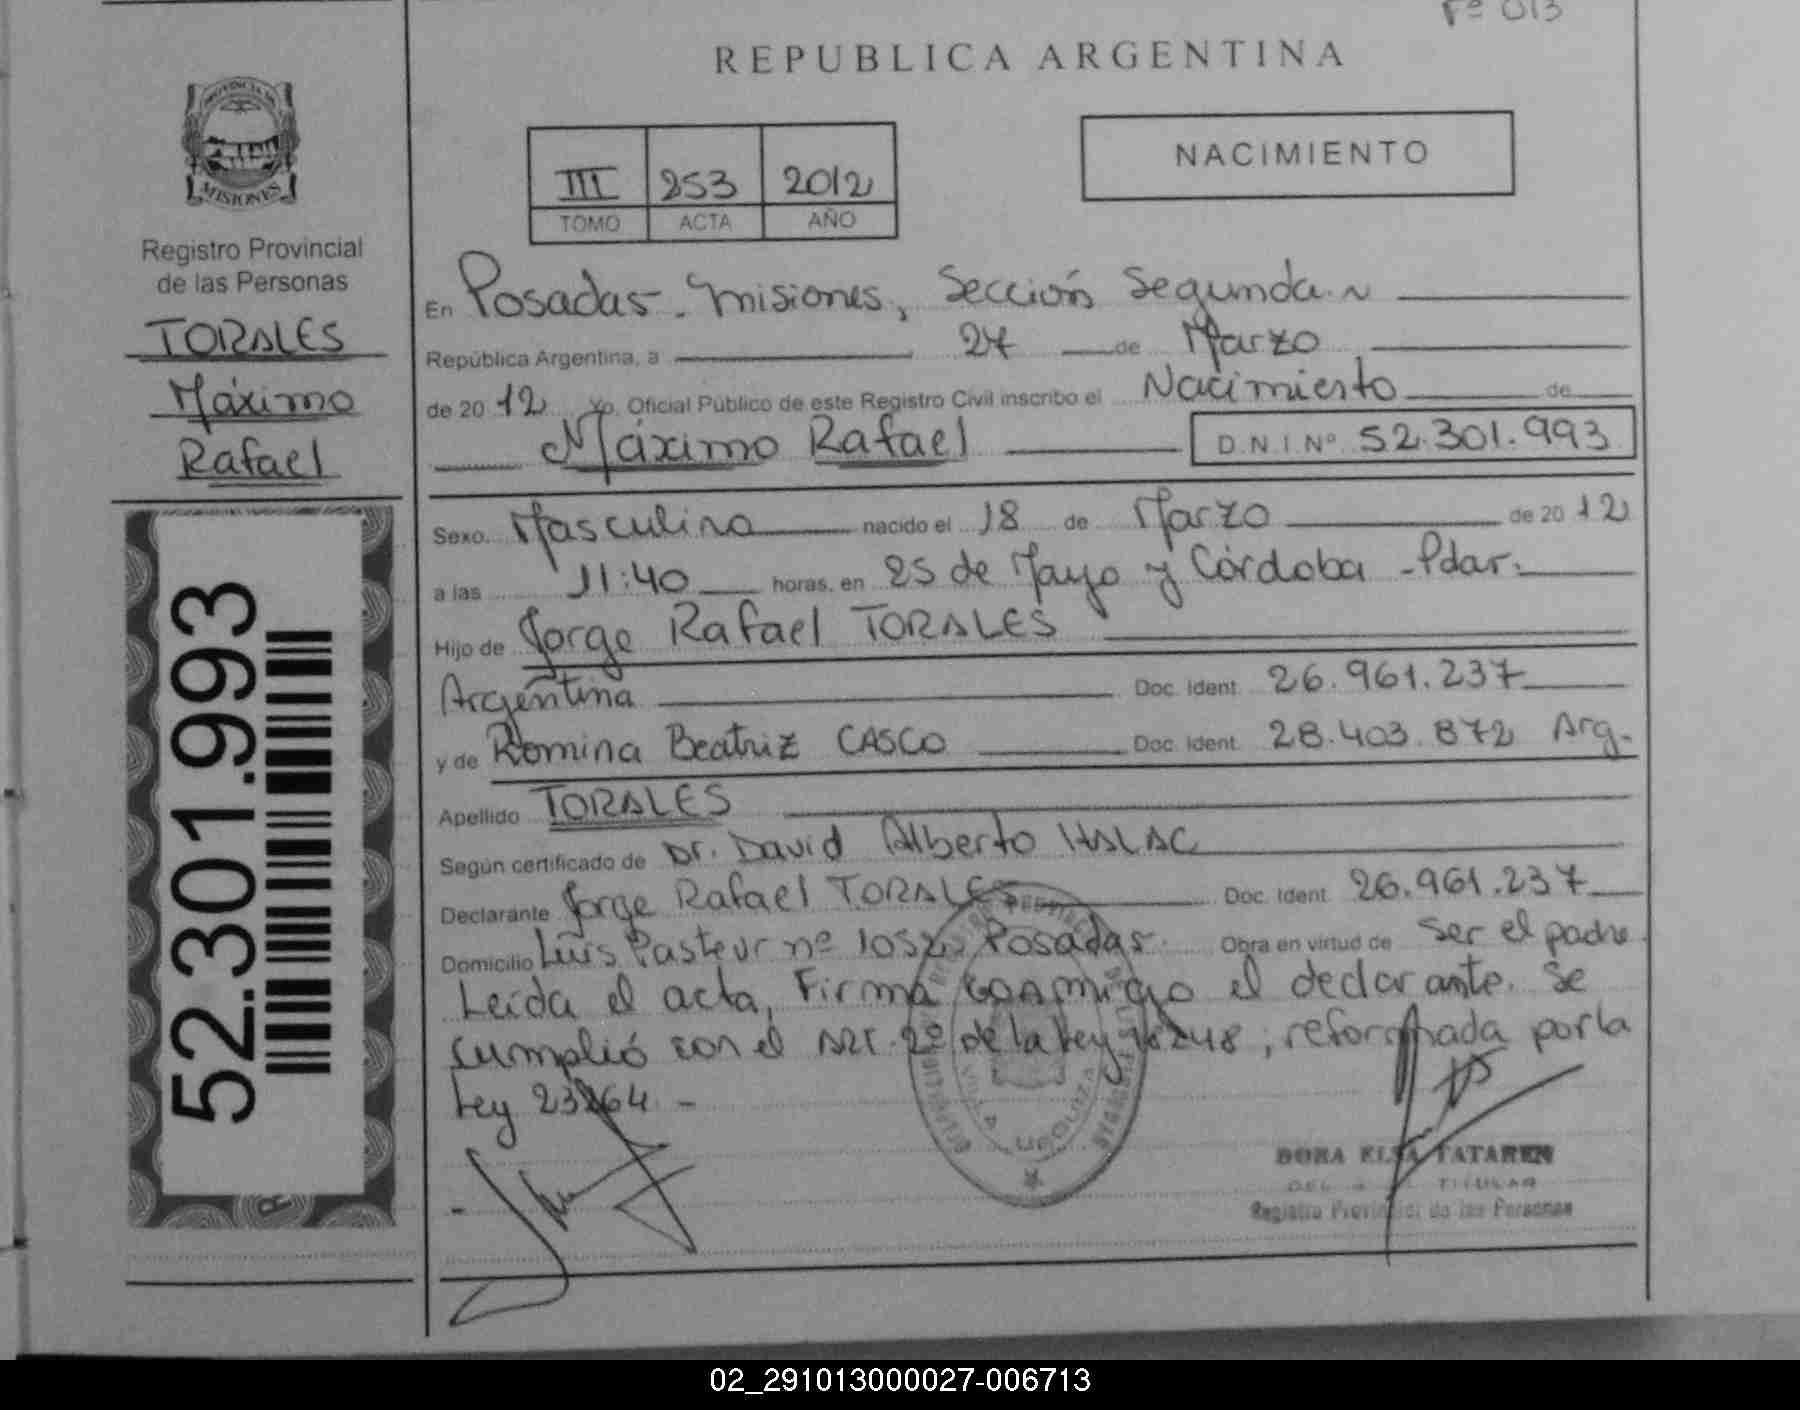 Fº 013
REPUBLICA ARGENTINA
NACIMIENTO
III 253 2012
TOMO ACTA AÑO
PROVINCIA DE
MISIONES
Registro Provincial
de las Personas
TORALES
Máximo
Rafael
52.301.993
En Posadas - Misiones, Sección Segunda.
República Argentina, a 27 de Marzo
de 2012 Yo, Oficial Público de este Registro Civil inscribo el Nacimiento de
Máximo Rafael D.N.I.Nº 52.301.993
Sexo Masculino nacido el 18 de Marzo de 2012
a las 11:40 horas, en 25 de Mayo y Córdoba - Pdas.
Hijo de Jorge Rafael TORALES
Argentina Doc. Ident. 26.961.237
y de Romina Beatriz CASCO Doc. Ident. 28.403.872 Arg.
Apellido TORALES
Según certificado de Dr. David Alberto HALAC
Declarante Jorge Rafael TORALES Doc. Ident. 26.961.237
Domicilio Luis Pasteur nº Posadas. Obra en virtud de Ser el padre
Leída el acta, Firma conmigo el declarante. Se
cumplió con el Art. 2º de la Ley 18248, reformada por la
Ley 23264 -
DORA ELSA TATAREN
TITULAR
Registro Provincial de las Personas
02_291013000027-006713